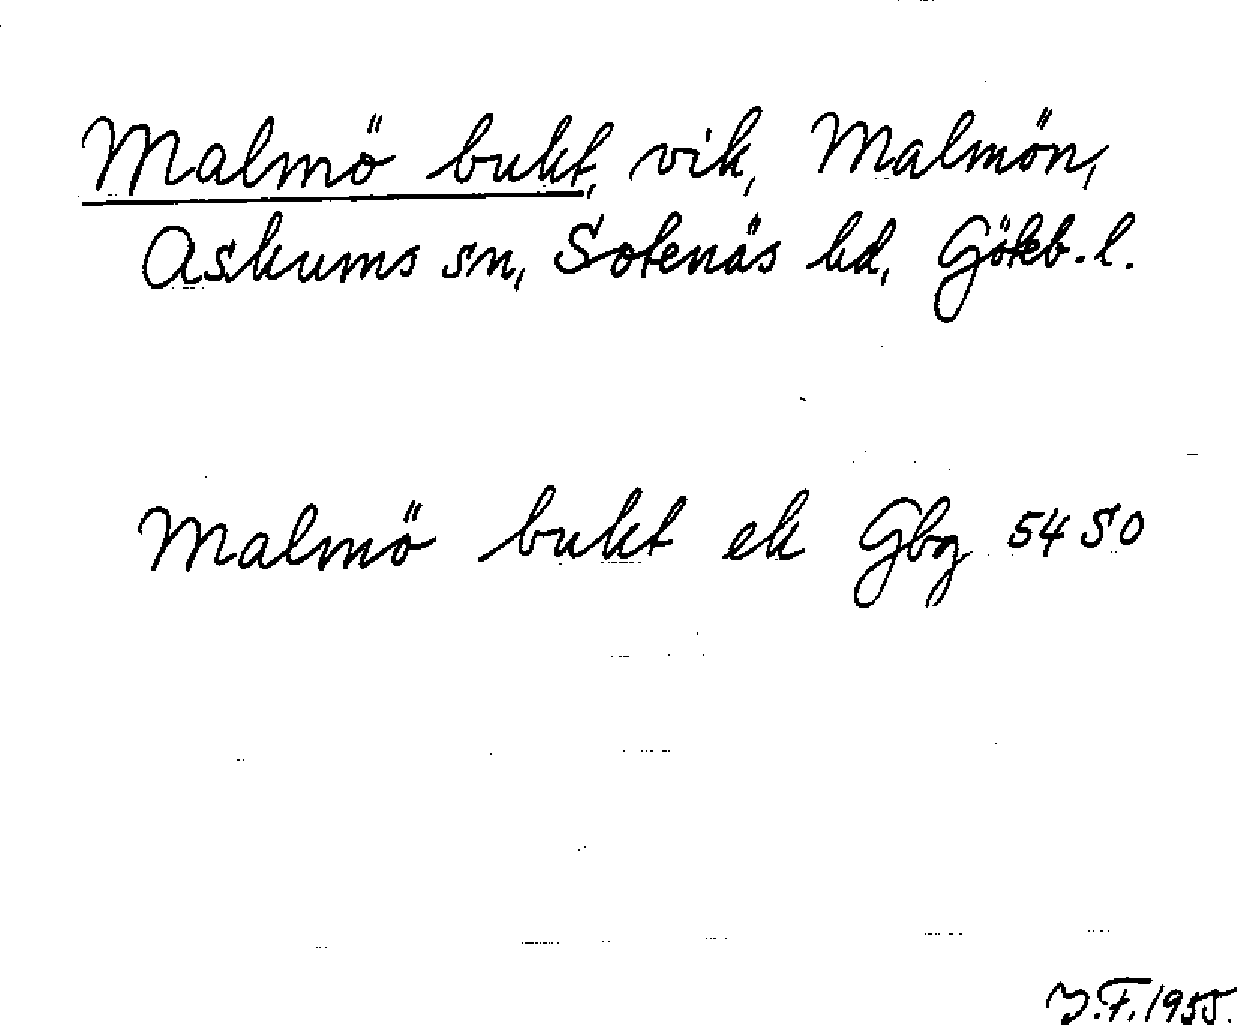 Malmö bukt, vik, Malmön,
Askums sn, Sotenäs hd, Göteb. l.
Malmö bukt ek Gbg 54 SO
J.F. 1955.